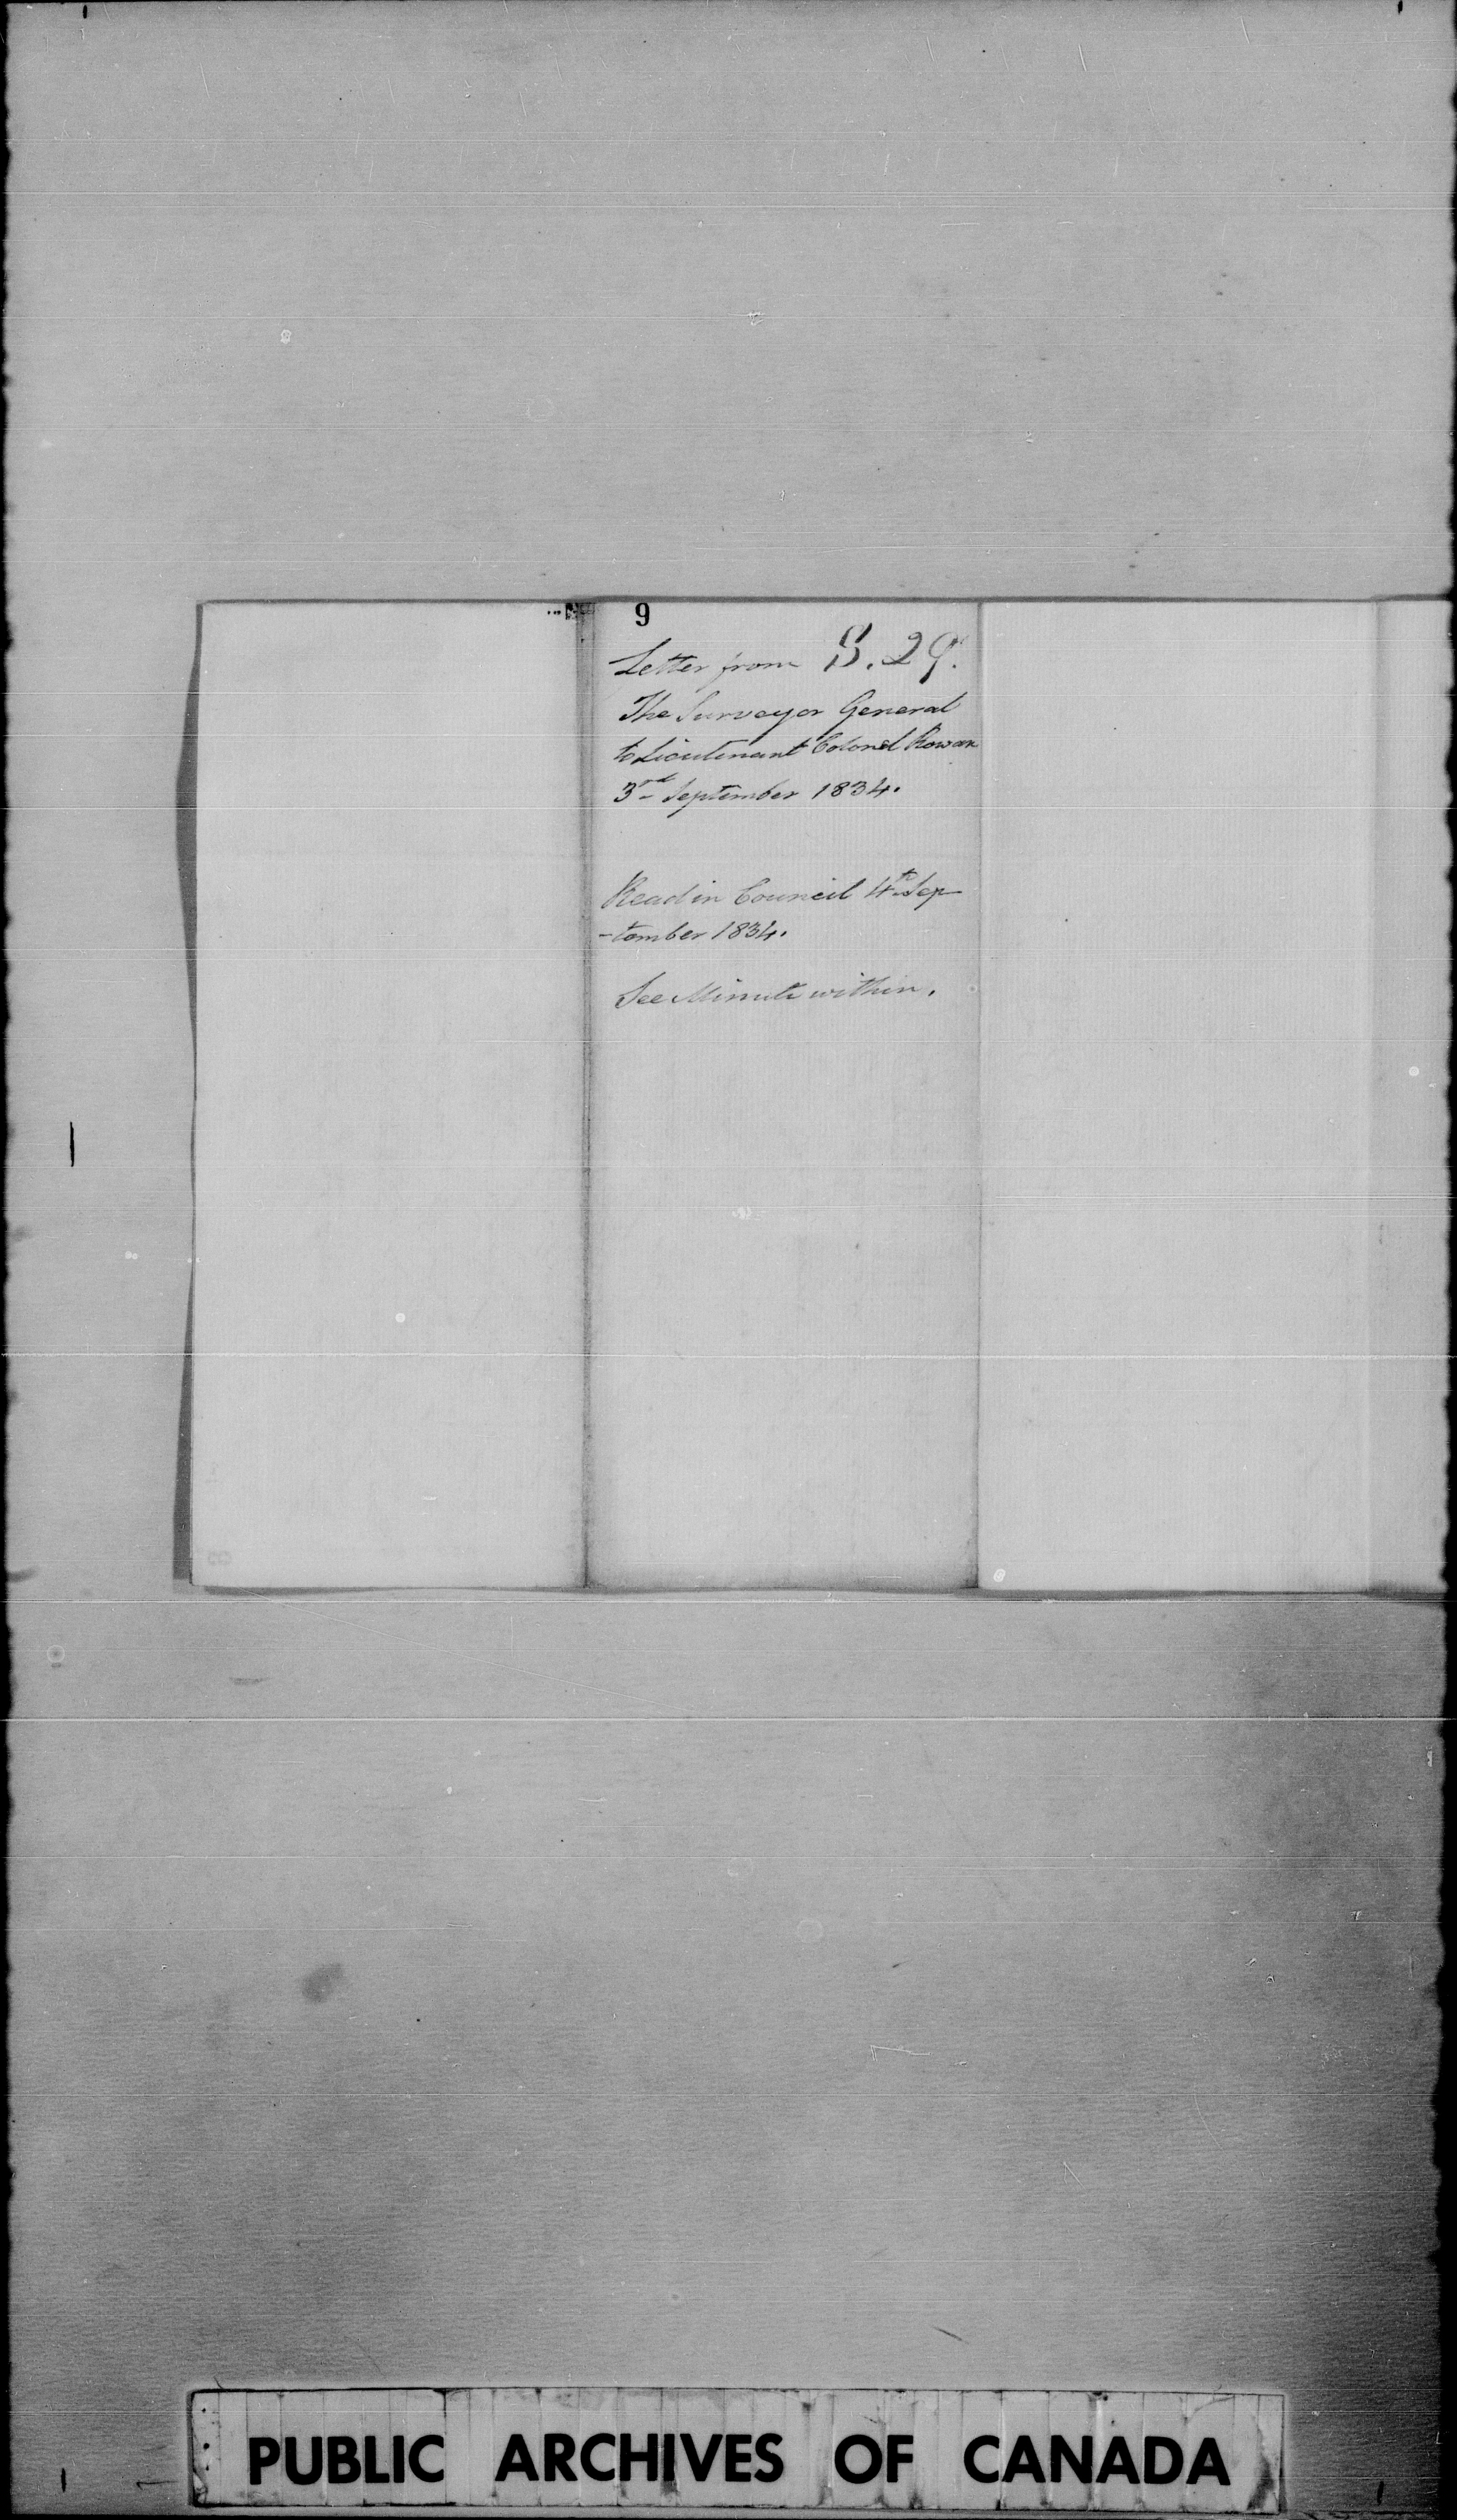 9
Letter from S. 29.
The Surveyor General
to Lieutenant Colonel Rowan
3rd September 1834.
Read in Council 4th Sep
-tember 1834.
See Minute within.
PUBLIC ARCHIVES OF CANADA